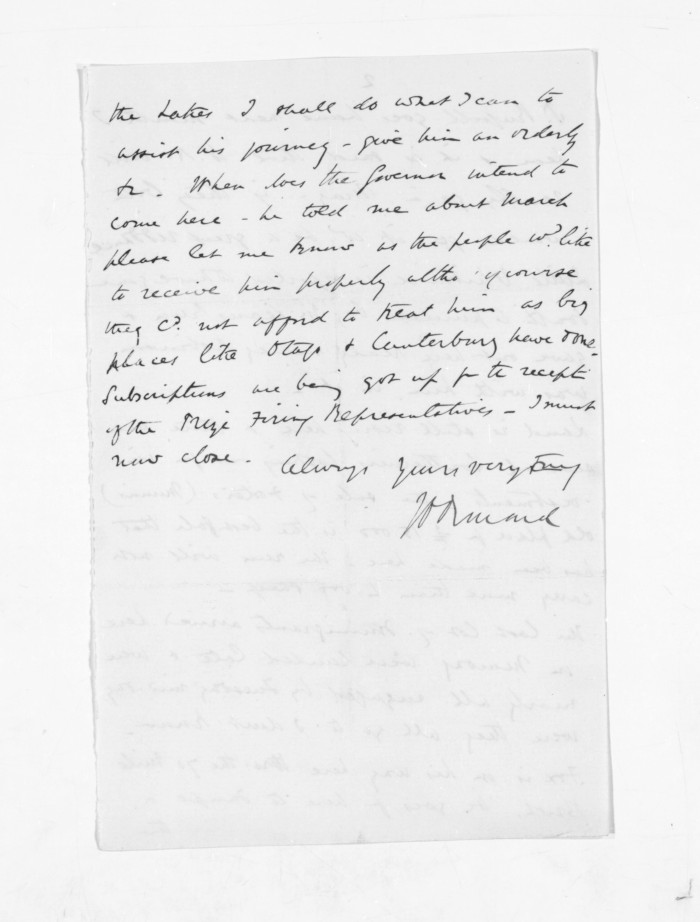 the Lakes I shall do what I can to
assist his journey - give him an orderly
&c. When does the Governor intend to
come here - he told me about March
please let me know as the people wd like
to receive him properly altho' of course
they cd. not afford to treat him as big
places like Otago & Canterbury have done -
Subscriptions are being got up for the recepti
of the Prize Firing Representatives - I must
now close. Always yours very truly
JD Ormond